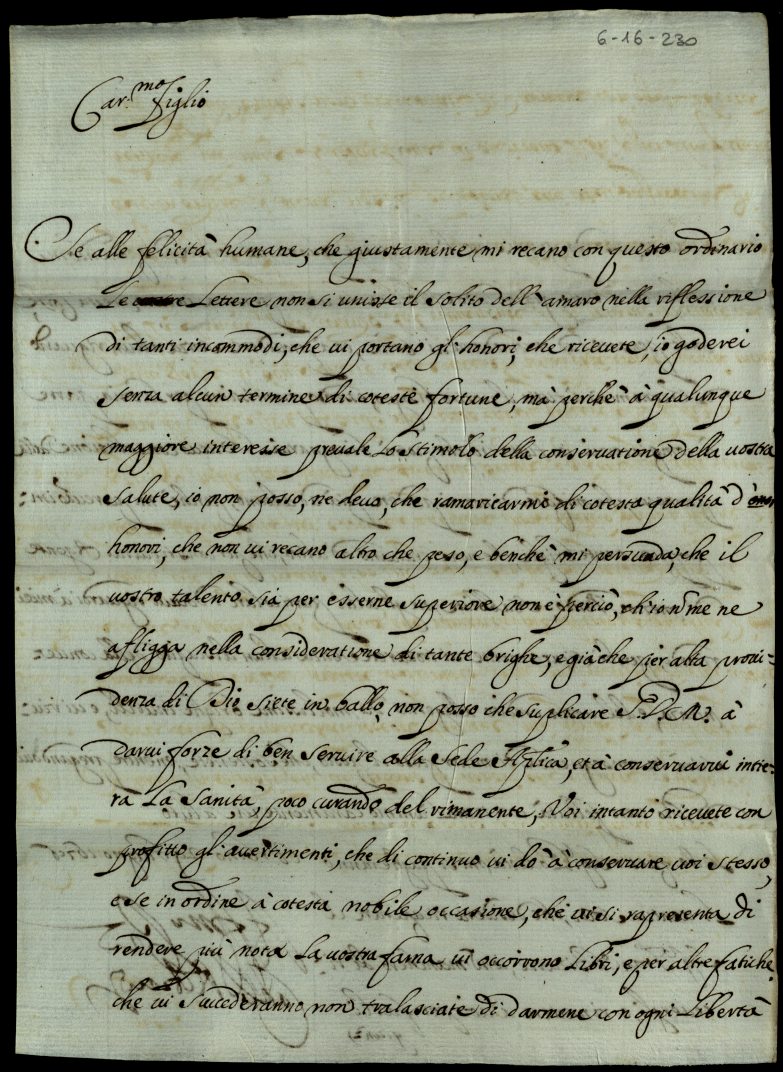 6-16-230
Car.mo figlio
Se alle felicità humane, che giustamente mi recano con questo ordinario
le Lettere non si unisse il solito dell'amaro nella riflessione
di tanti incommodi, che vi portano gl'honori, che ricevete, io goderei
senza alcun termine di coteste fortune, mà perche à qualunque
maggiore interesse prevale Lo stimolo della conservatione della vostra
salute, io non posso, ne devo, che ramaricarmi di cotesta qualità d'
honori, che non vi recano altro che peso, e benche mi persuada, che il
vostro talento sia per esserne superiore non è perciò, ch'io nõ me ne
afligga nella consideratione di tante brighe, e già che per alta provi-
denza di Dio siete in ballo, non posso che suplicare S.D.M. à
darvi forze di ben servire alla Sede Ap.lica, et à conservarvi intie-
ra La Sanità, poco curando del rimanente, Voi intanto ricevete con
profitto gl'avertimenti, che di continuo vi dò à conservare voi stesso,
e se in ordine à cotesta nobile occasione, che vi si rapresenta di
rendere più nota La vostra fama vi occorrono Libri, e per altre fatiche
che vi succederanno non tralasciate di darmene con ogni Libertà